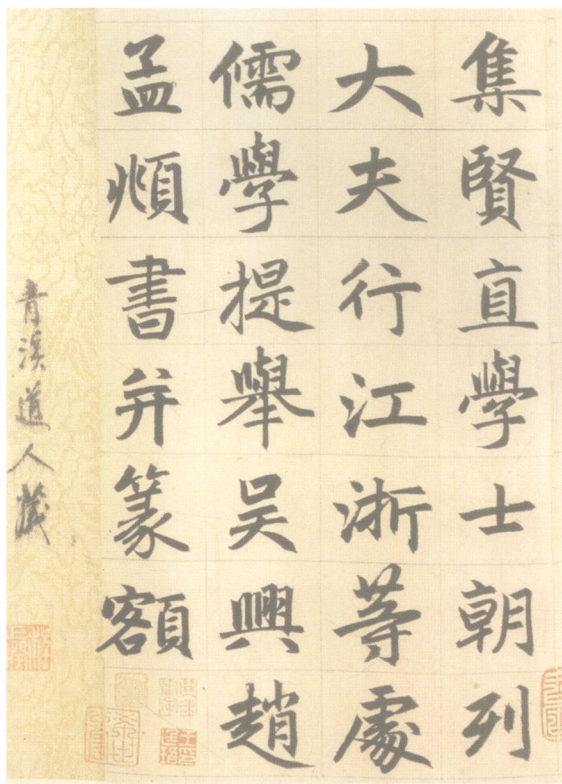 集賢直學士朝列
大夫行江浙等處
儒學提舉吳興趙
孟頫書并篆額
青溪道人藏